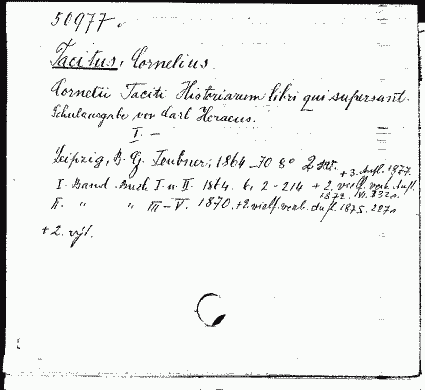 50977.
Tacitus, Cornelius.
Cornelii Taciti Historiarum libri qui supersunt.
Schulausgabe von Carl Heraeus.
I –
Leipzig, B. G. Teubner, 1864–70 8° 2 + 3. Aufl. 1877.
I. Band. Buch I u II. 1864. 2–214 + 2. vielf. verb. Aufl.
1872. 232 s.
II. " " III–V. 1870. + 2. vielf. verb. Aufl. 1875. 227 s
+ 2. výt.